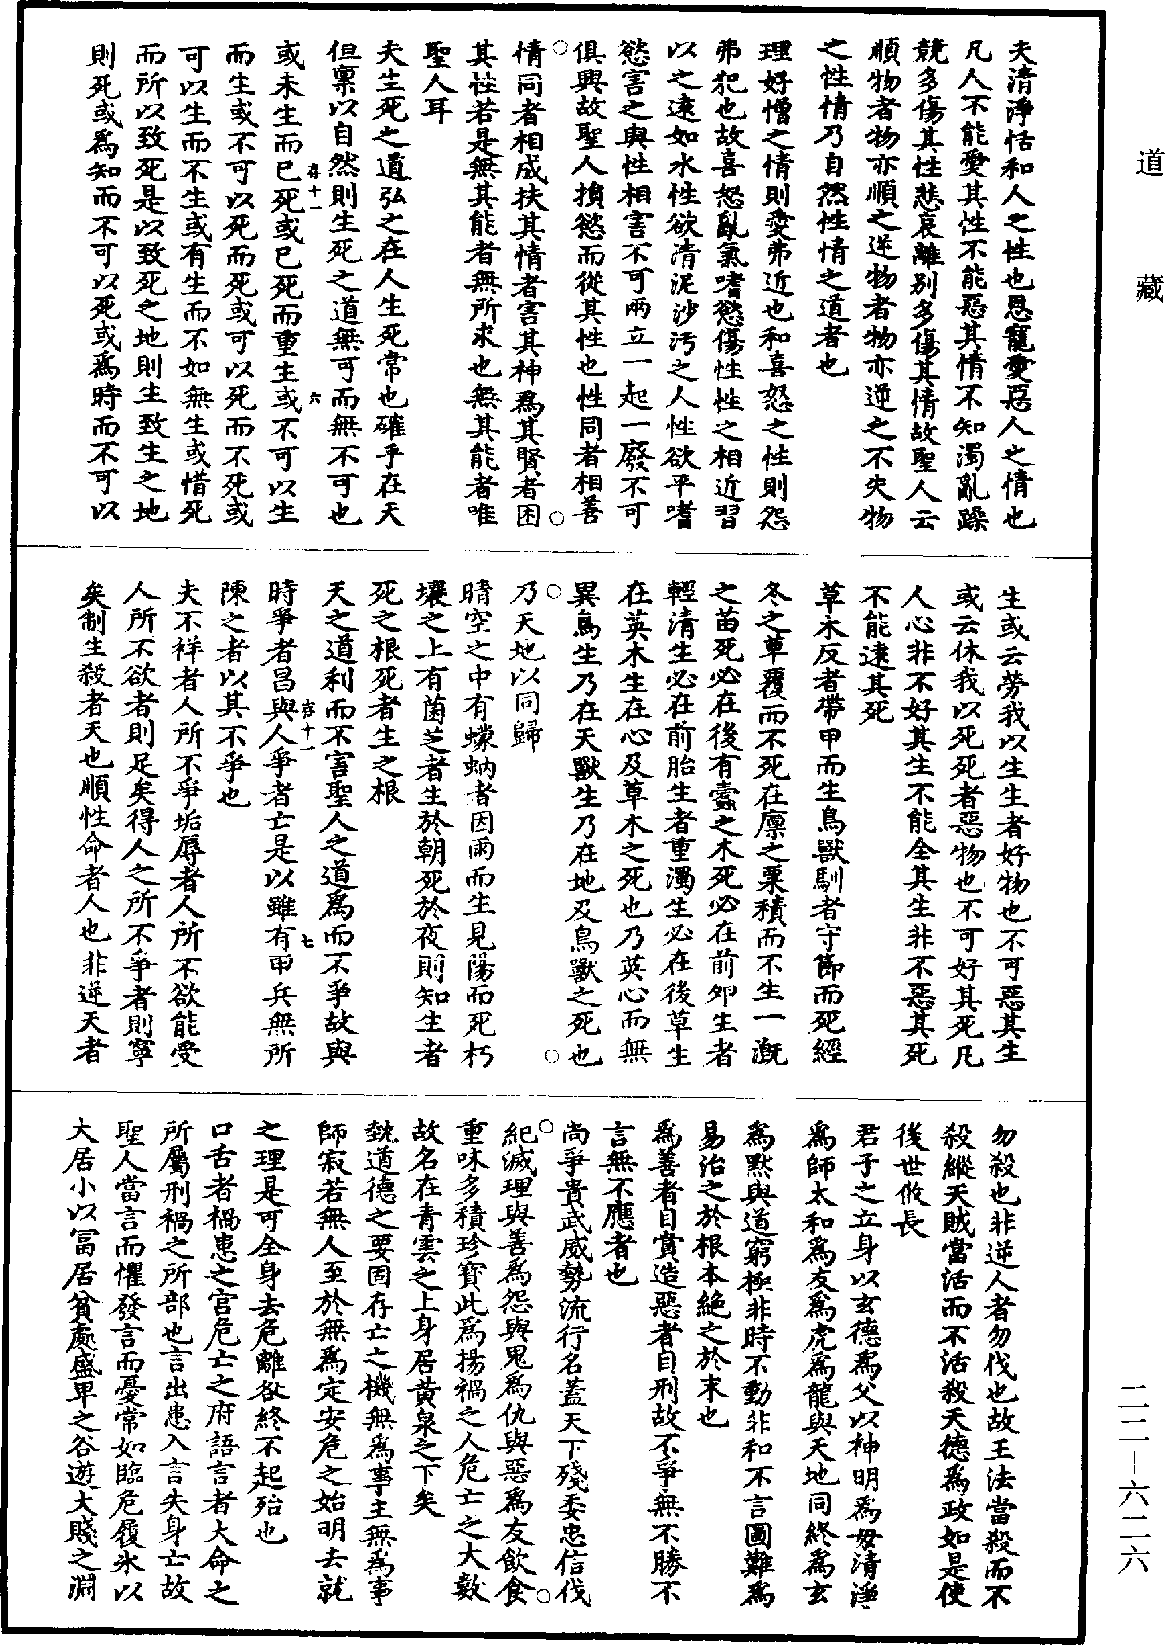 道藏
夫清淨恬和人之性也恩寵愛惡人之情也
凡人不能愛其性不能惡其情不知濁亂躁
競多傷其性悲哀離別多傷其情故聖人云
順物者物亦順之逆物者物亦逆之不失物
之性情乃自然性情之道者也
理好憎之情則愛弗近也和喜怒之性則怨
弗犯也故喜怒亂氣嗜慾傷性性之相近習
以之遠如水性欲清泥沙污之人性欲平嗜
慾害之與性相害不可兩立一起一廢不可
俱興故聖人損慾而從其性也性同者相善
情同者相成扶其情者害其神爲其賢者困
其性若是無其能者無所求也無其能者唯
聖人耳
夫生死之道弘之在人生死常也確乎在天
但稟以自然則生死之道無可而無不可也
六
或未生而已死或已死而重生或不可以生
而生或不可以死而死或可以死而不死或
可以生而不生或有生而不如無生或惜死
而所以致死是以致死之地則生致生之地
則死或爲知而不可以死或爲時而不可以
生或云勞我以生生者好物也不可惡其生
或云休我以死死者惡物也不可好其死凡
人心非不好其生不能全其生非不惡其死
不能遠其死
草木反者帶甲而生鳥獸馴者守節而死經
冬之草覆而不死在廩之粟積而不生一溉
之苗死必在後有蠹之木死必在前卵生者
輕清生必在前胎生者重濁生必在後草生
在英木生在心及草木之死也乃英心而無
異鳥生乃在天獸生乃在地及鳥獸之死也
乃天地以同歸
晴空之中有蠓蚋者因雨而生見陽而死朽
壤之上有菌芝者生於朝死於夜則知生者
死之根死者生之根
天之道利而不害聖人之道爲而不爭故與
七
時爭者昌與人爭者亡是以雖有甲兵無所
陳之者以其不爭也
夫不祥者人所不爭垢辱者人所不欲能受
人所不欲者則足矣得人之所不爭者則寧
矣制生殺者天也順性命者人也非逆天者
勿殺也非逆人者勿伐也故王法當殺而不
殺縱天賊當活而不活殺天德爲政如是使
後世攸長
君子之立身以玄德爲父以神明爲母清淨
爲師太和爲友爲虎爲龍與天地同終爲玄
爲默與道窮極非時不動非和不言圖難爲
易治之於根本絕之於末也
爲善者自賞造惡者自刑故不爭無不勝不
言無不應者也
尚爭貴武威勢流行名蓋天下殘委忠信伐
紀滅理與善爲怨與鬼爲仇與惡爲友飲食
重味多積珍寶此爲揚禍之人危亡之大數
故名在青雲之上身居黃泉之下矣
執道德之要固存亡之機無爲事主無爲事
師寂若無人至於無爲定安危之始明去就
之理是可全身去危離咎終不起殆也
口舌者禍患之宮危亡之府語言者大命之
所屬刑禍之所部也言出患入言失身亡故
聖人當言而懼發言而憂常如臨危履冰以
大居小以富居貧處盛卑之谷遊大賤之淵
二二—六二六